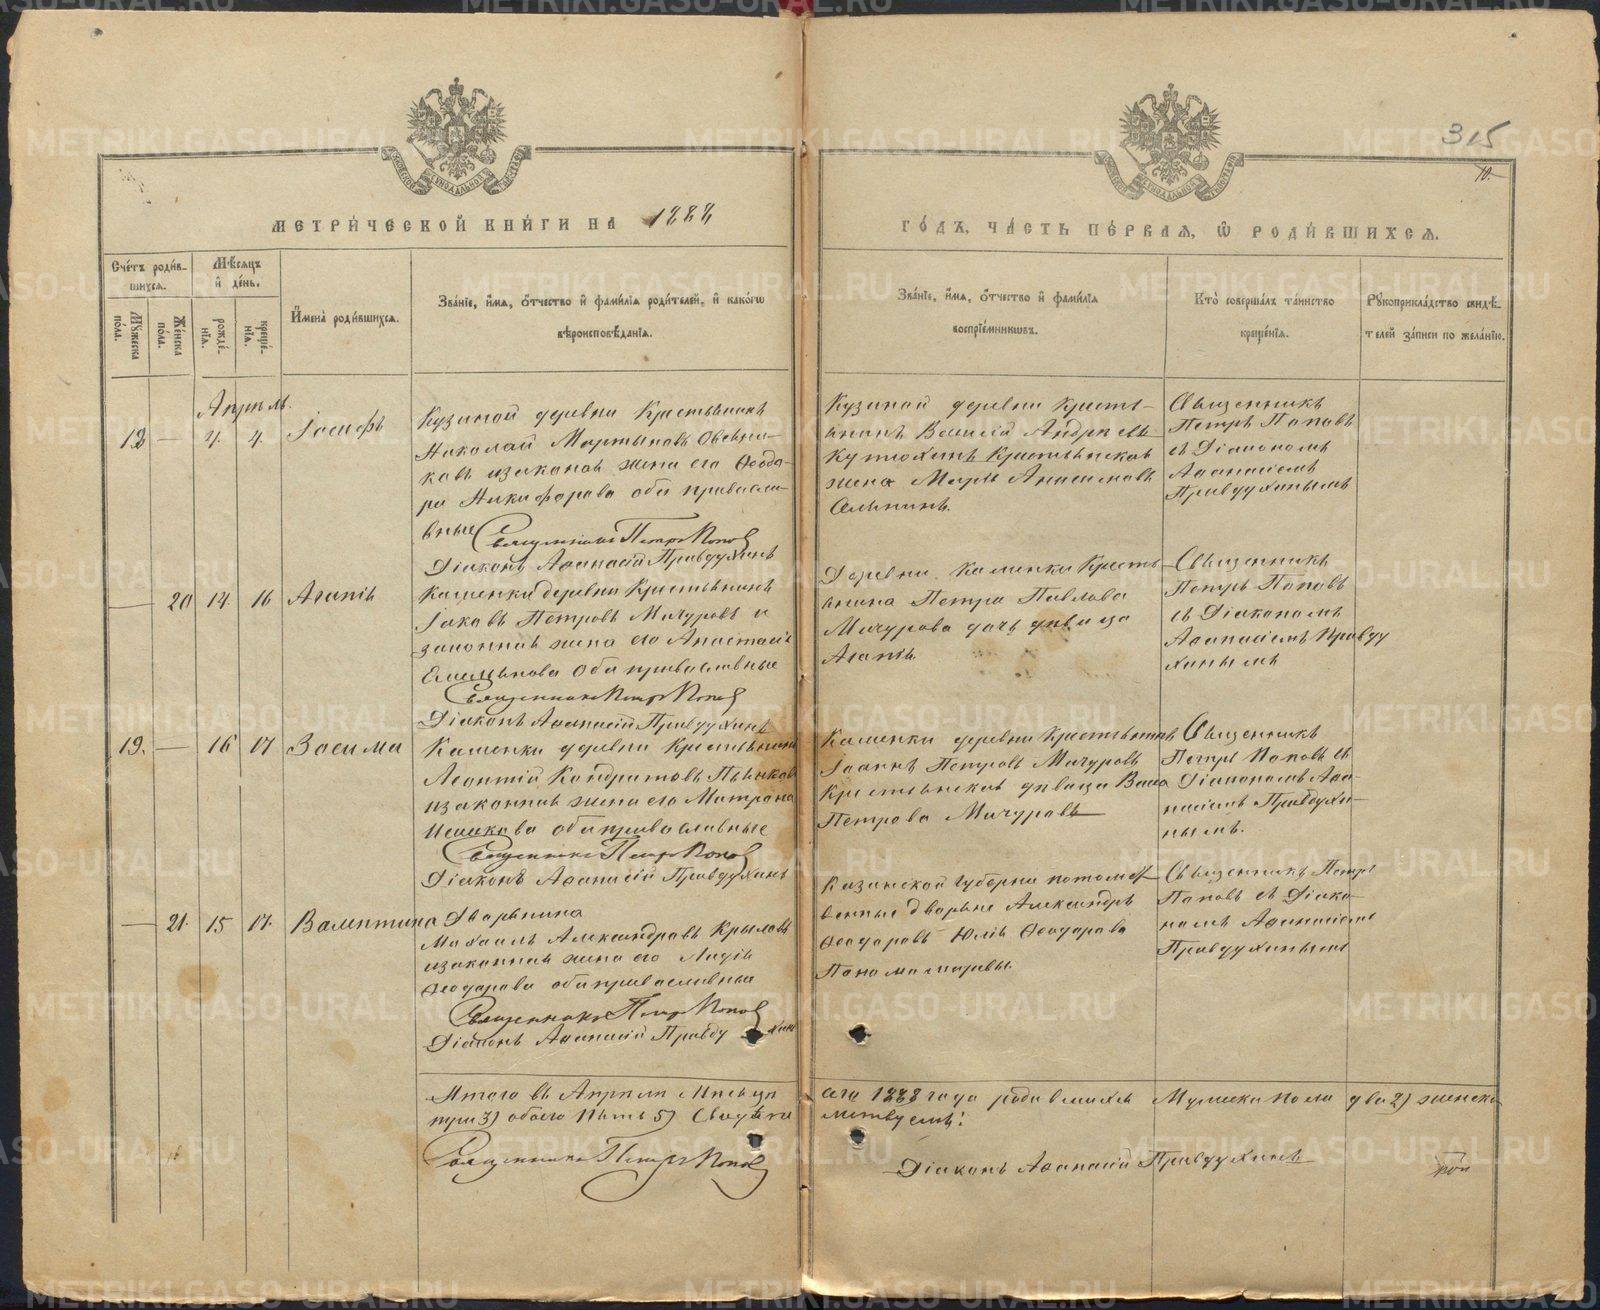 315
10.
МЕТРИ́ЧЕСКОЙ КНИ́ГИ НА 1888
ГО́ДЪ, ЧА́СТЬ ПЕ́РВАЯ, Ѡ РОДИ́ВШИХСЯ.
Сче́тъ роди́в-
шихся.
Му́жеска по́ла.
Же́нска по́ла.
Мѣ́сяцъ и де́нь.
рожде́-
нія.
креще́-
нія.
И҆мена̀ роди́вшихся.
Зва́ніе, и҆́мя, ѻ҆́тчество и҆ фамі́лія роди́телей, и҆ како́гѡ
вѣроисповѣ́данія.
Зва́ніе, и҆́мя, ѻ҆́тчество и҆ фамі́лія
воспріе́мниковъ.
Кто̀ соверша́лъ та́инство
креще́нія.
Рꙋкоприкла́дство свидѣ́-
телей за́писи по жела́нію.
Апрѣль.
18 — 4. 4. Іосифъ
Кузиной деревни Крестьянинъ
Николай Мартыновъ Овсянни-
ковъ изаконная жена его Ѳеодо-
ра Никифорова оба православ-
ные Священникъ Петръ Поповъ
Діаконъ Аѳанасій Правдухинъ
Кузиной деревни Кресть-
янинъ Василій Андреевъ
Кутюхинъ Крестьянская
жена Марѳа
Священникъ
Петръ Поповъ
съ Діакономъ
Аѳанасіемъ
Правдухинымъ
— 20 14 16 Агапія
Каменки деревни Крестьянинъ
Іаковъ Петровъ Мичуровъ и
законная жена его Анастасія
Емельянова оба православные
Священникъ Петръ Поповъ
Діаконъ Аѳанасій Правдухинъ
Деревни Каменки Кресть-
янина Петра Павлова
Мичурова дочь дѣвица
Агапія
Священникъ
Петръ Поповъ
съ Діакономъ
Аѳанасіемъ Правду
хинымъ
19. — 16 17 Зосима
Каменки деревни Крестьянинъ
Леонтій Кондратовъ Пьянковъ
изаконная жена его Матрона
Исаакова оба православные
Священникъ Петръ Поповъ
Діаконъ Аѳанасій Правдухинъ
Каменки деревни Крестьянинъ
Іоаннъ Петровъ Мичуровъ
Крестьянская дѣвица Васса
Петрова Мичурова
Священникъ
Петръ Поповъ съ
Діакономъ Аѳа-
насіемъ Правдухи-
нымъ.
— 21. 15 17. Валентина
Дворянина
Михаилъ Александровъ Крыловъ
изаконная жена его Лидія
Ѳеодорова оба православные
Священникъ Петръ Поповъ
Діаконъ Аѳанасій Правдухинъ
Казанской губерніи потомст-
венные дворяне Александръ
Ѳеодоровъ Юлія Ѳеодорова
Пономаревы.
Священникъ Петръ
Поповъ съ Діако-
номъ Аѳанасіемъ
Правдухинымъ
Итого въ Апрѣлѣ Мѣсяцѣ сего 1888 года родившихся Мужеска пола два 2) женска
три 3) обоего пять 5)
Священникъ Петръ Поповъ
Діаконъ Аѳанасій Правдухинъ